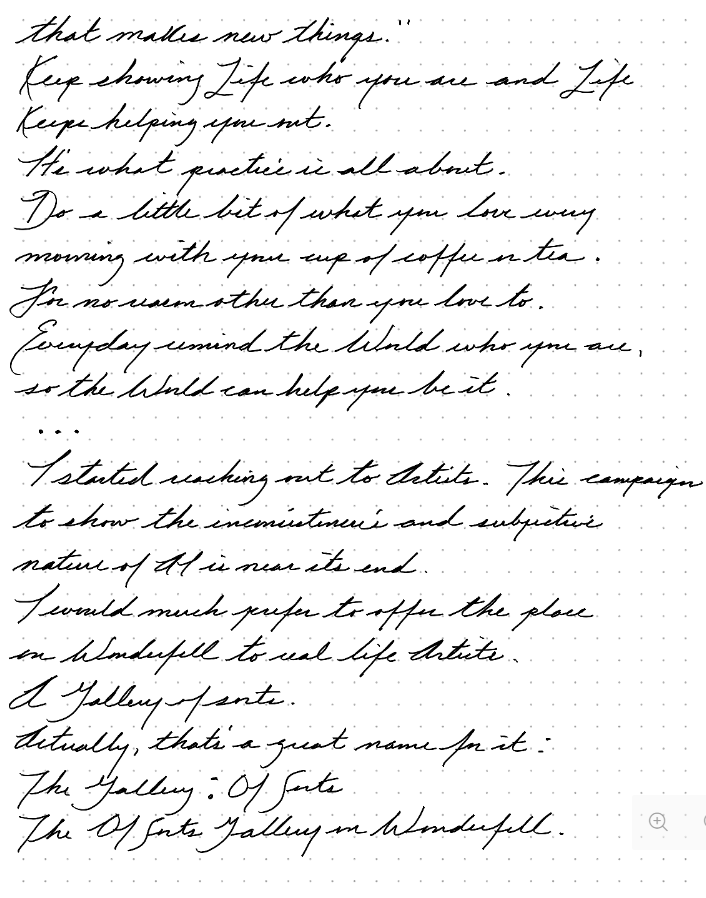 that makes new things."
Keep showing Life who you are and Life
Keeps helping you out.
It's what practice is all about.
Do a little bit of what you love every
morning with your cup of coffee or tea.
For no reason other than you love to.
Everyday remind the World who you are,
so the World can help you be it.
...
I started reaching out to Artists. This campaign
to show the inconsistencies and subjective
nature of AI is near its end.
I would much prefer to offer the place
on Wonderfell to real life Artists.
A Gallery of sorts.
Actually, that's a great name for it:
The Gallery: Of Sorts
The Of Sorts Gallery on Wonderfell.